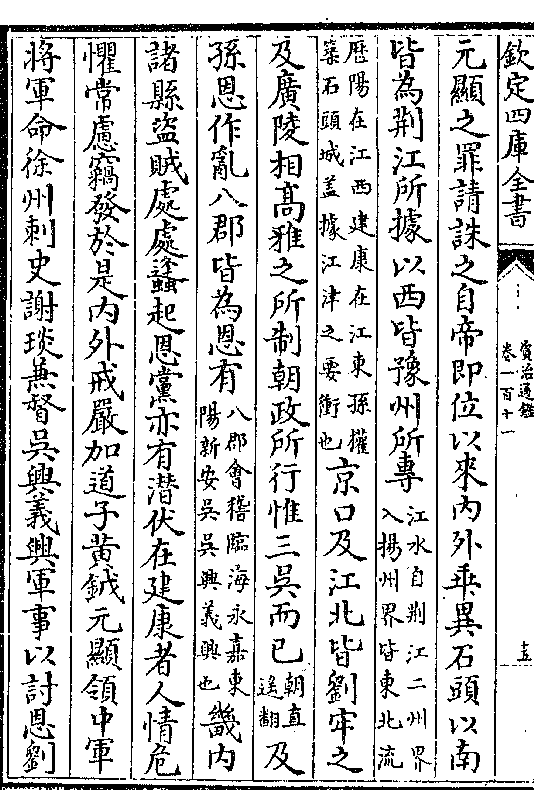 欽定四庫全書
資治通鑑
卷一百十一
十五
元顯之罪請誅之自帝即位以來内外乖異石頭以南
皆為荆江所據以西皆豫州所專江水自荆江二州界
入揚州界皆東北流
歴陽在江西建康在江東孫權
築石頭城盖據江津之要衝也京口及江北皆劉牢之
及廣陵相髙雅之所制朝政所行惟三吳而已朝直
遥翻及
孫恩作亂八郡皆為恩有八郡會稽臨海永嘉東
陽新安吳吳興義興也畿内
諸縣盜賊處處蠭起恩黨亦有潛伏在建康者人情危
懼常慮竊發於是内外戒嚴加道子黄鉞元顯領中軍
將軍命徐州刺史謝琰兼督吳興義興軍事以討恩劉